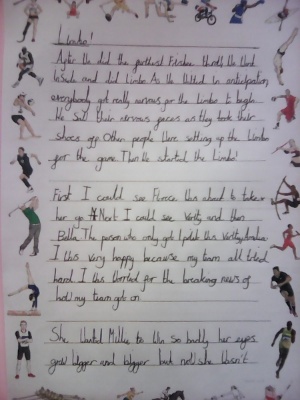 Limbo!
After We did the furthest Frisbee throw We Went
inside and did Limbo As We Waited in anticipation
everybody got really nervous for the Limbo to begin
We saw their nervous faces as they took their
shoes off Other people Were setting up the Limbo
for the game Then We started the Limbo!
First I could see Was about to take
her go Next I could see Verity and then
Bella The person who only got 1 point Was Verity
I Was Very happy because my team all tried
hard I Was Worried for the breaking news of
how my team got on
She Wanted Millie to Win so badly her eyes
got bigger and bigger but no! she Wasn't